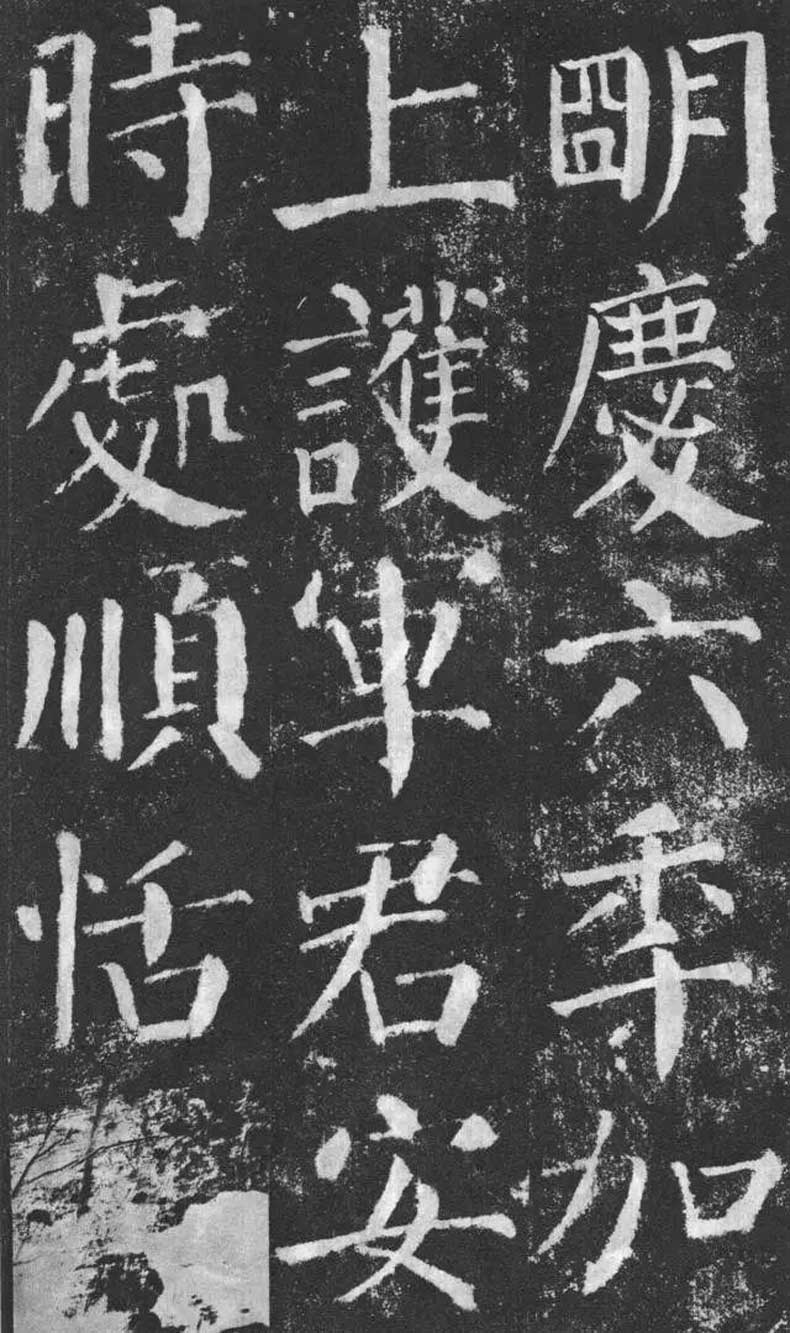 明慶六年加
上護軍君安
時處順恬